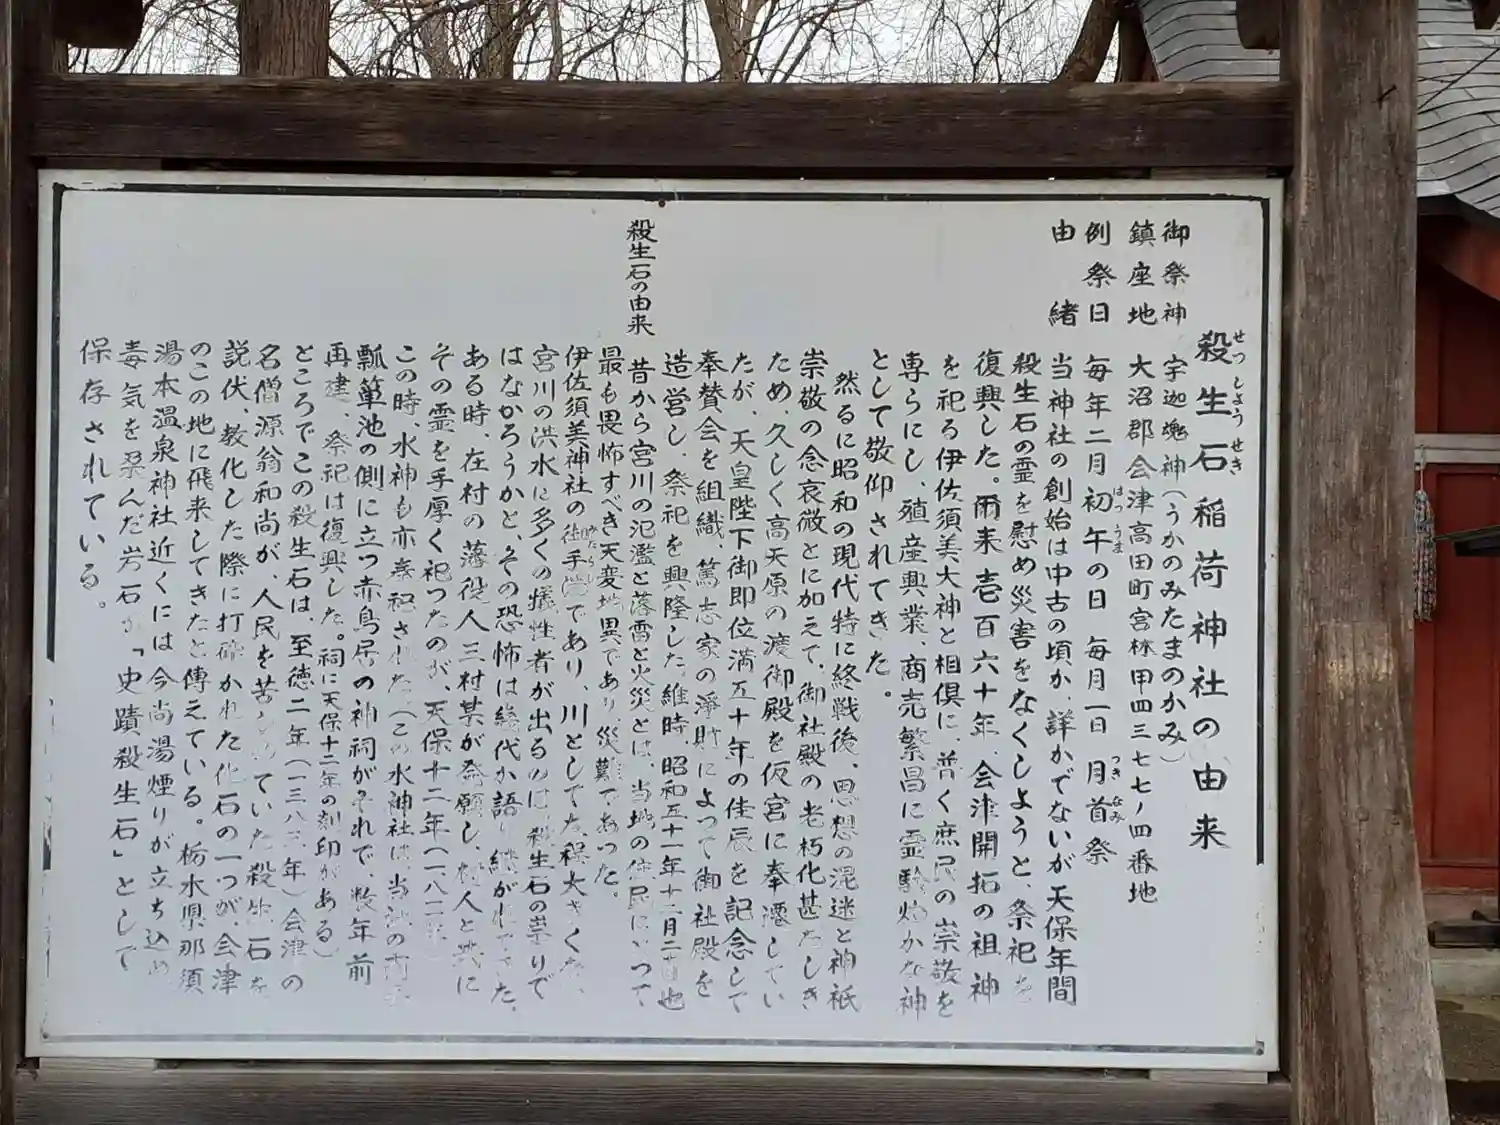 殺生石稲荷神社の由来
せっしょうせき
御祭神 宇迦魂神(うかのみたまのかみ)
鎮座地 大沼郡会津高田町宮林甲四三七七ノ四番地
例祭日 毎年二月初午の日 毎月一日 月首祭
はつうま つきなみ
由緒 当神社の創始は中古の頃か、詳かでないが天保年間
殺生石の霊を慰め災害をなくしようと、祭祀を
復興した。爾来壱百六十年、会津開拓の祖神
を祀る伊佐須美大神と相俱に、普く庶民の崇敬を
専らにし、殖産興業、商売繁昌に霊験灼かな神
として敬仰されてきた。
然るに昭和の現代特に終戦後、思想の混迷と神祇
崇敬の念衰微とに加えて、御社殿の老朽化甚だしき
ため、久しく高天原の渡御殿を仮宮に奉遷してい
たが、天皇陛下御即位満五十年の佳辰を記念して
奉賛会を組織、篤志家の浄財によって御社殿を
造営し、祭祀を興隆した。維時、昭和五十一年十二月二十 也
殺生石の由来 昔から宮川の氾濫と落雷と火災とは、当地の住民にいって
最も畏怖すべき天変地異であり、災難であった。
伊佐須美神社の御手洗であり、川としてた程大きくな、
みたらし
宮川の洪水に多くの犠牲者が出るのは、殺生石の祟りで
はなかろうかと、その恐怖は 代か語 継がれてきた。
ある時、在村の落役人三村某が発願し、村人と共に
その霊を手厚く祀ったのが、天保十二年(一八二
この時、水神も亦奉祀された。(この水神社は、当 の
瓢箪池の側に立つ赤鳥居の神祠がそれで、数年前
再建、祭祀は復興した。祠に天保十二年の刻印がある)
ところでこの殺生石は、至徳二年(一三八 年)会津の
名僧源翁和尚が、人民を苦しめていた殺生石を
説伏、教化した際に打砕かれた化石の一つが、会津
のこの地に飛来してきたと傳えている。栃木県那須
湯本温泉神社近くには今尚湯煙りが立ち込め
毒気を孕んだ岩石が「史蹟殺生石」として
保存されている。